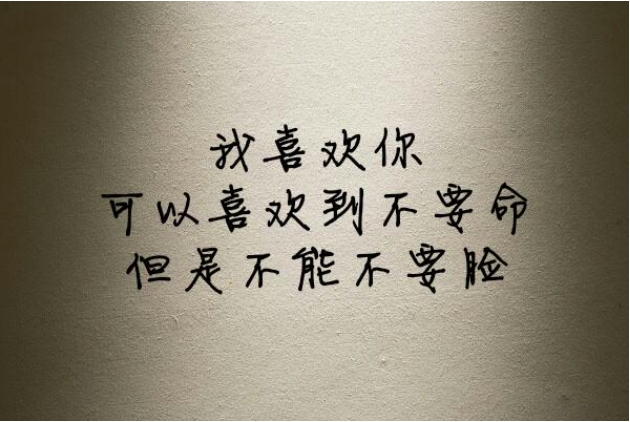 我喜欢你
可以喜欢到不要命
但是不能不要脸